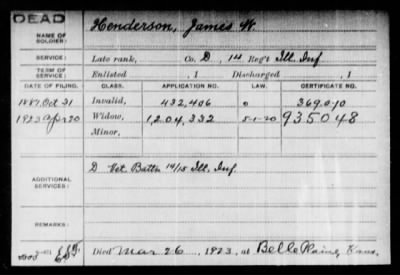 DEAD
NAME OF SOLDIER: Henderson, James W.
SERVICE: Late rank, Co. D, 14 Reg't Ill. Inf.
TERM OF SERVICE: Enlisted , 1 Discharged , 1
DATE OF FILING. CLASS. APPLICATION NO. LAW. CERTIFICATE NO.
1887 Oct 31 Invalid, 432,406 369,010
1923 Apr 20 Widow, 1,204,332 5-1-20 935048
Minor,
ADDITIONAL SERVICES: D Vet. Battn 14/15 Ill. Inf.
REMARKS:
Died Mar 26, 1923, at Belle Plaine, Kans.